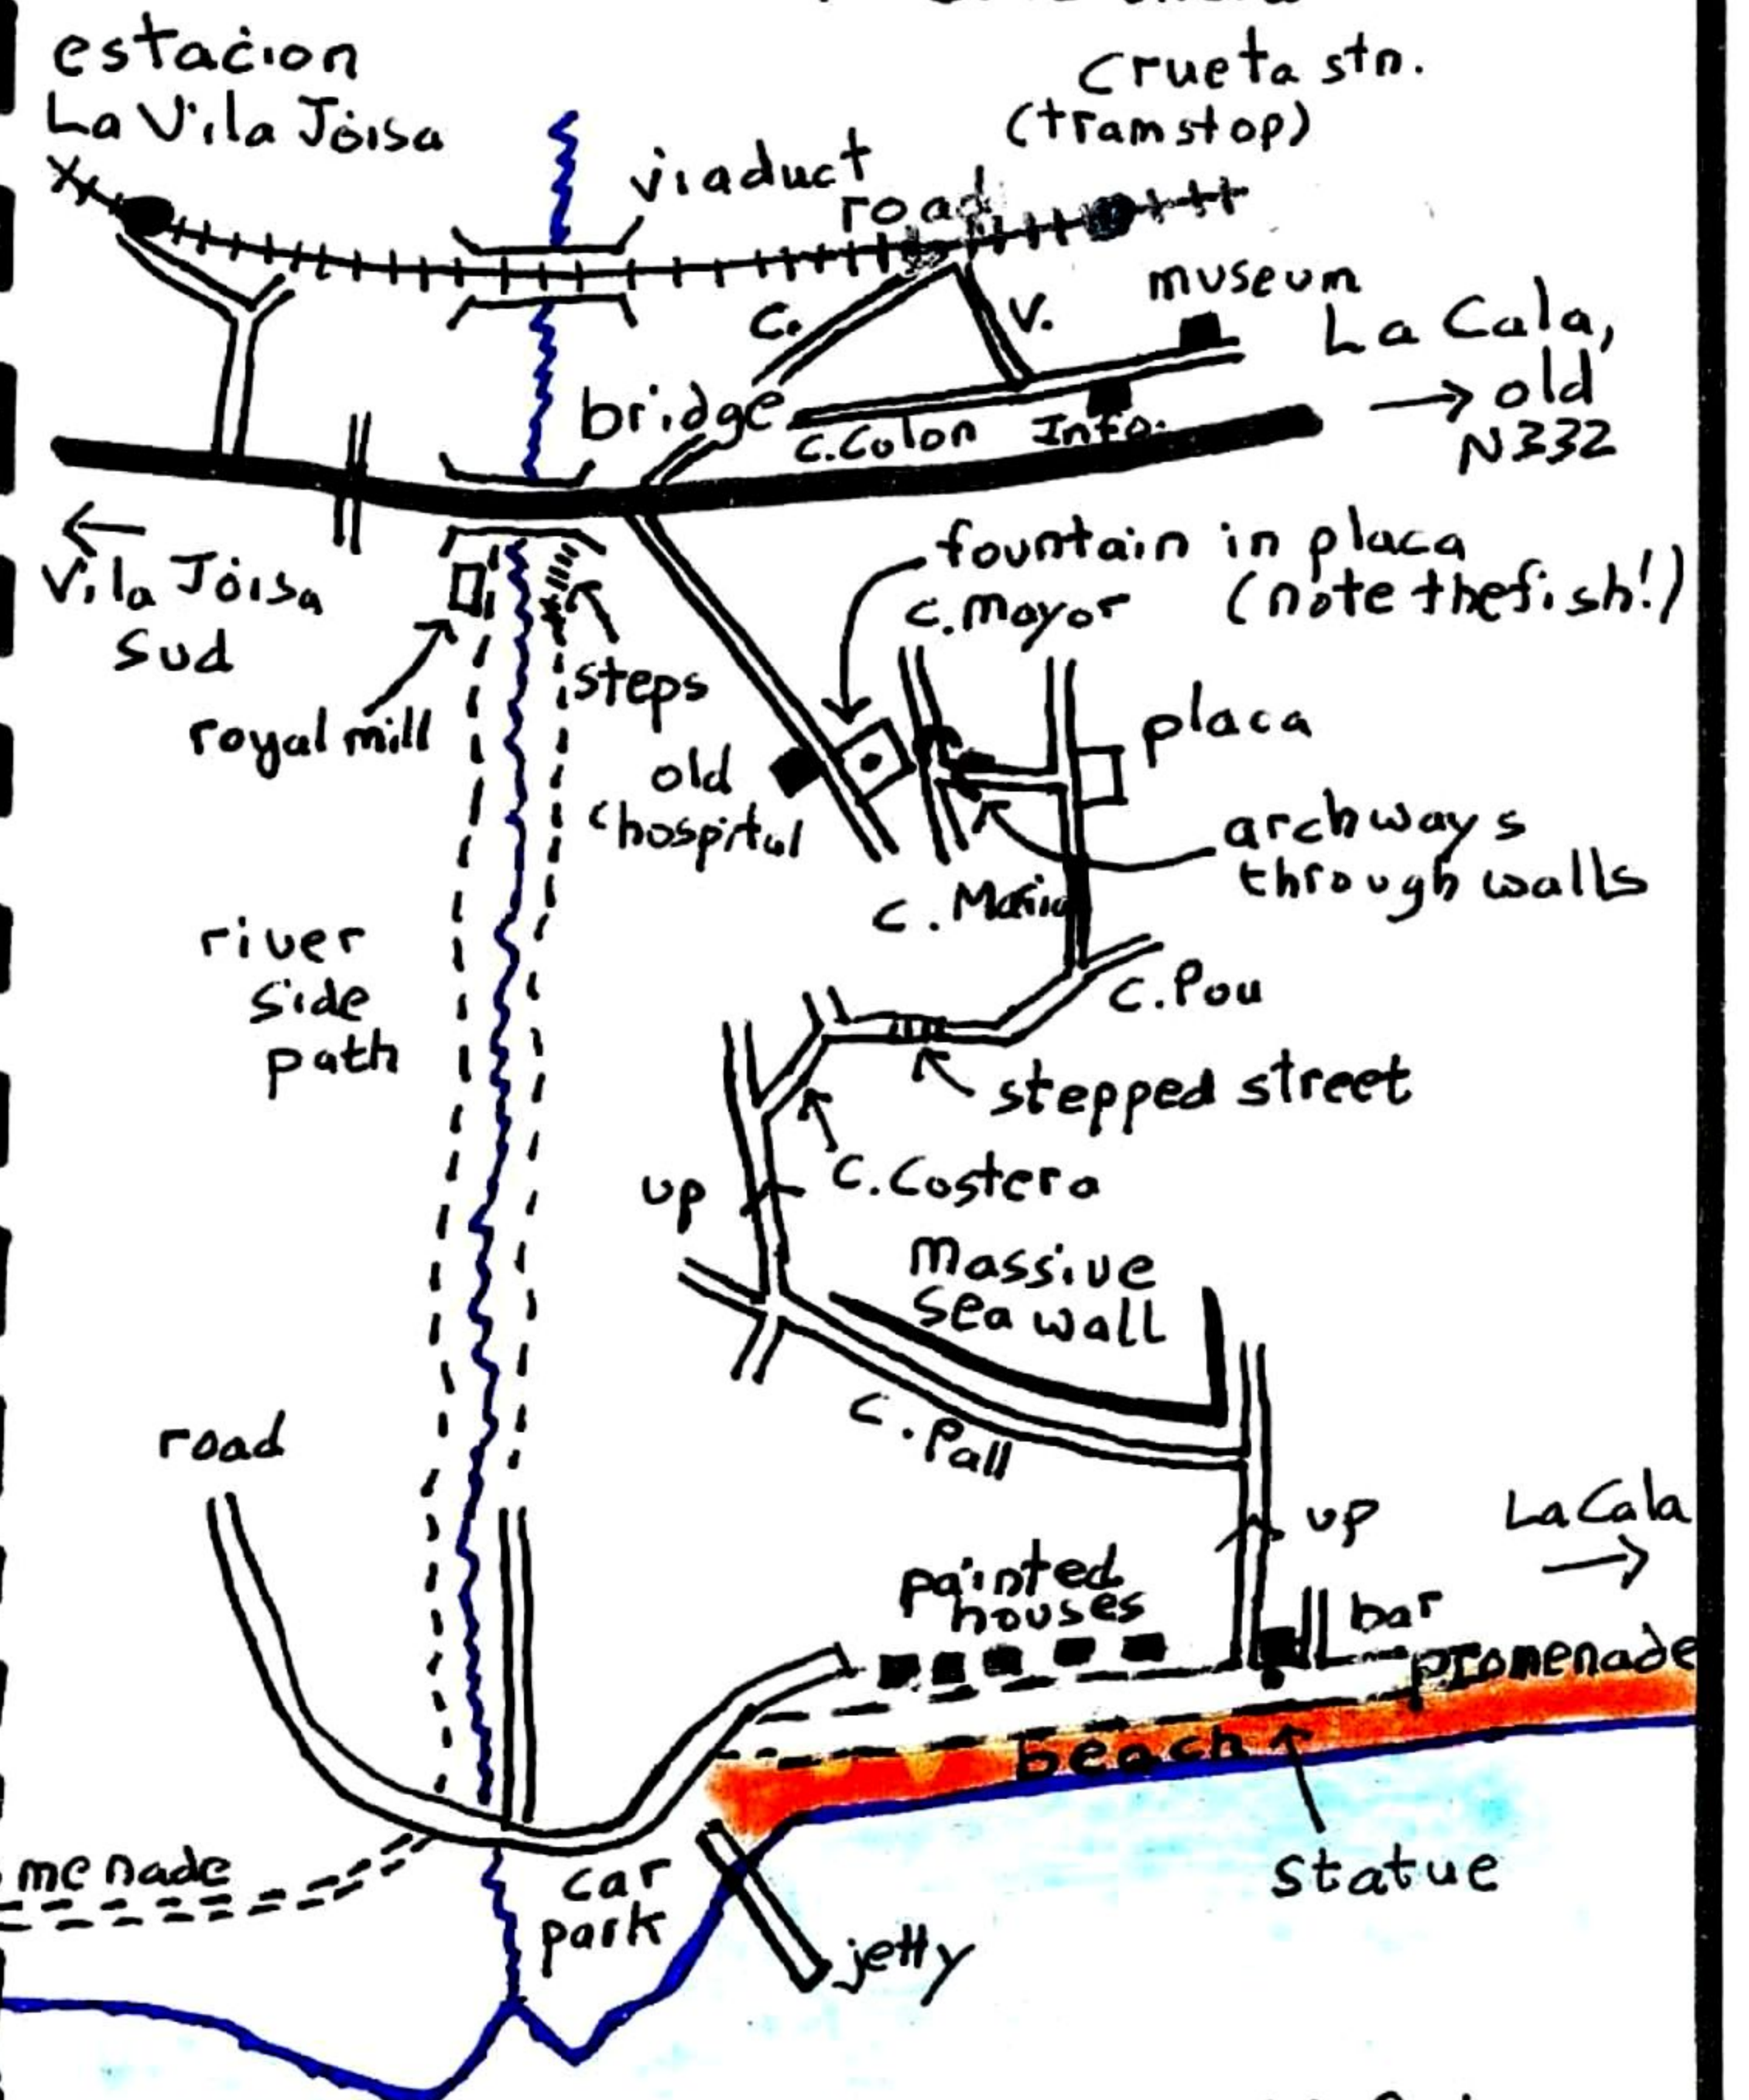 estación
La Vila Jóisa
Crueta stn.
(tramstop)
viaduct
road
museum
C.
V.
La Cala,
old
N332
bridge
C.Colon
Info.
Vila Jóisa
Sud
fountain in placa
(note the fish!)
C. Mayor
steps
royal mill
placa
old
hospital
archways
through walls
C. Maria
river
side
path
C. Pou
stepped street
C. Costera
up
Massive
Sea wall
C. Pall
road
up
La Cala
painted
houses
bar
promenade
beach
statue
menade
car
park
jetty